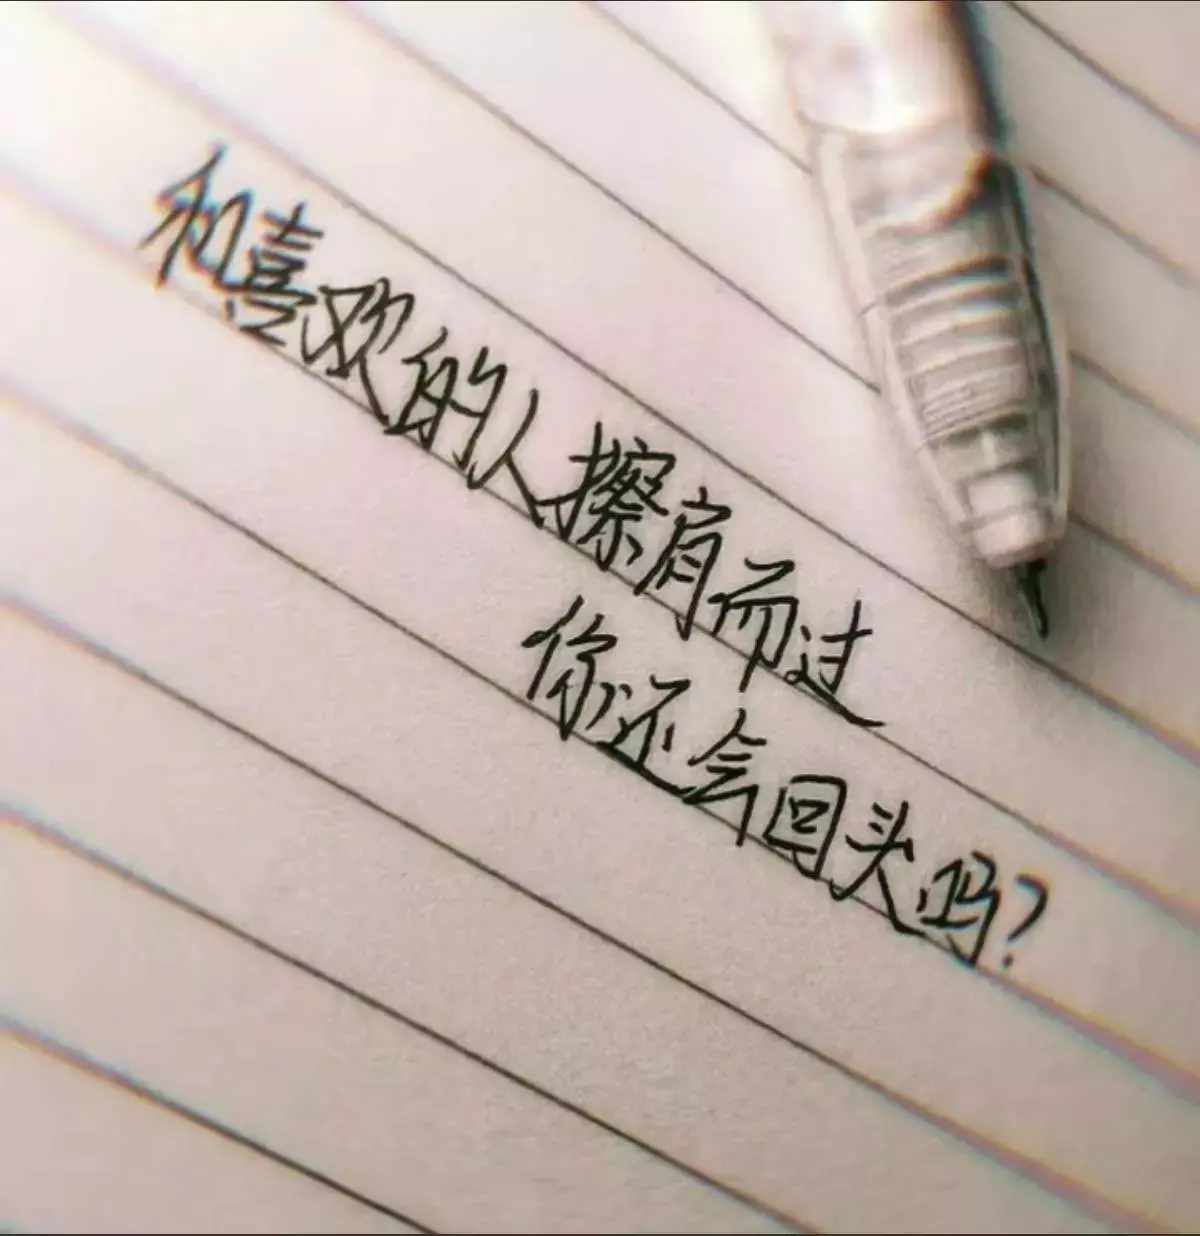 和喜欢的人擦肩而过
你还会回头吗?